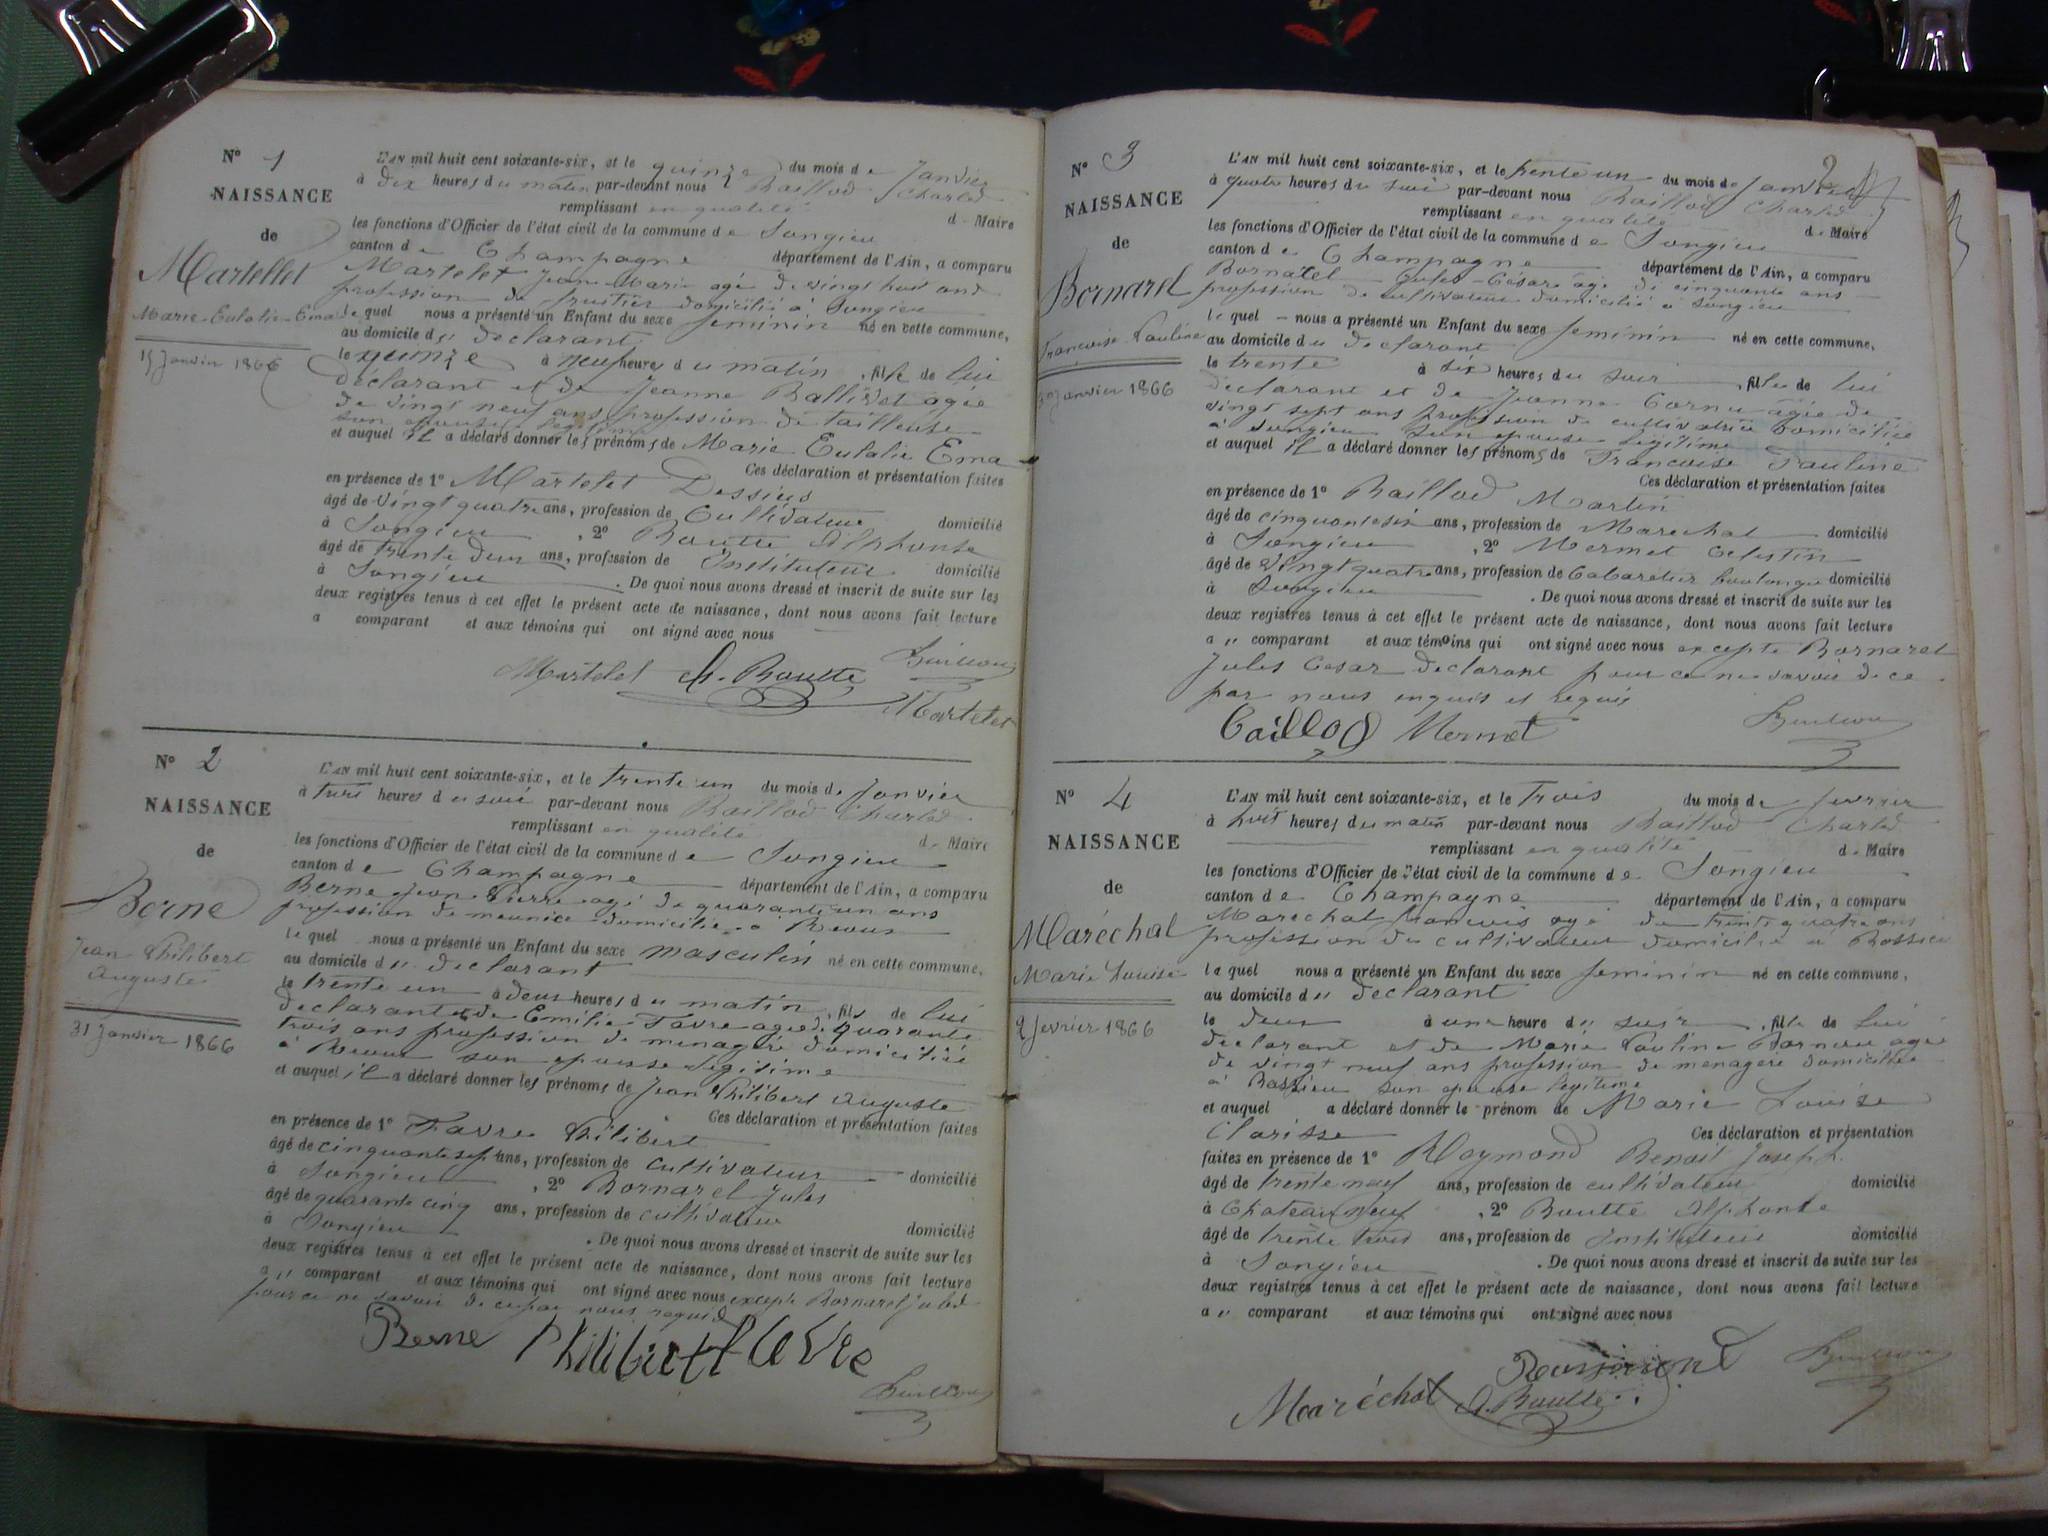 N° 1
NAISSANCE
de
Martellet
Marie-Eulalie-Ema
15 Janvier 1866
L'AN mil huit cent soixante-six, et le quinze du mois de Janvier
à dix heures du matin par-devant nous Baillod Charles
remplissant en qualité d Maire
les fonctions d'Officier de l'état civil de la commune de Songieu
canton de Champagne département de l'Ain, a comparu
Martelet Jean-Marie agé de vingt huit ans
profession de fruitier domicilié à Songieu
le quel nous a présenté un Enfant du sexe feminin né en cette commune,
au domicile du declarant
le quinze à neuf heures du matin, fille de lui
déclarant et de Jeanne Ballivet agée
de vingt neuf ans profession de tailleuse
son epouse legitime
et auquel il a déclaré donner les prénoms de Marie Eulalie Ema
Ces déclaration et présentation faites
en présence de 1° Martelet
âgé de vingt quatre ans, profession de Cultivateur domicilié
à Songieu, 2° Boutte Alphonse
âgé de trente deux ans, profession de Instituteur domicilié
à Songieu. De quoi nous avons dressé et inscrit de suite sur les
deux registres tenus à cet effet le présent acte de naissance, dont nous avons fait lecture
a comparant et aux témoins qui ont signé avec nous
Martelet A. Boutte
Martelet
N° 2
NAISSANCE
de
Berne
Jean Philibert
Auguste
31 Janvier 1866
L'AN mil huit cent soixante-six, et le trente un du mois de Janvier
à trois heures du soir par-devant nous Baillod Charles
remplissant en qualité d Maire
les fonctions d'Officier de l'état civil de la commune de Songieu
canton de Champagne département de l'Ain, a comparu
Berne Jean Pierre agé de quarante un ans
profession de meunier domicilié à
le quel nous a présenté un Enfant du sexe masculin né en cette commune,
au domicile du declarant
le trente un à deux heures du matin, fils de lui
declarant et de Emilie Favre agée de quarante
trois ans profession de menagère domiciliée
à son epouse legitime
et auquel il a déclaré donner les prénoms de Jean Philibert Auguste
Ces déclaration et présentation faites
en présence de 1° Favre Philibert
âgé de cinquante sept ans, profession de cultivateur domicilié
à Songieu, 2° Bornarel Jules
âgé de quarante cinq ans, profession de cultivateur domicilié
à Songieu. De quoi nous avons dressé et inscrit de suite sur les
deux registres tenus à cet effet le présent acte de naissance, dont nous avons fait lecture
a u comparant et aux témoins qui ont signé avec nous excepté Bornarel Jules
pour ce ne savoir de ce par nous requis
Berne Philibert
N° 3
NAISSANCE
de
Bornarel
Francoise Pauline
30 Janvier 1866
2
L'AN mil huit cent soixante-six, et le trente un du mois de Janvier
à quatre heures du soir par-devant nous Baillod Charles
remplissant en qualité d Maire
les fonctions d'Officier de l'état civil de la commune de Songieu
canton de Champagne département de l'Ain, a comparu
Bornarel Jules-César agé de cinquante ans
profession de cultivateur domicilié à Songieu
le quel nous a présenté un Enfant du sexe feminin né en cette commune,
au domicile du declarant
le trente à six heures du soir, fille de lui
declarant et de Jeanne Cornu agée de
vingt sept ans profession de cultivatrice domiciliée
à Songieu son epouse legitime
et auquel il a déclaré donner les prénoms de Francoise Pauline
Ces déclaration et présentation faites
en présence de 1° Baillod Martin
âgé de cinquante six ans, profession de Marechal domicilié
à Songieu, 2° Mermet Celestin
âgé de vingt quatre ans, profession de Cabaretier boulanger domicilié
à Songieu. De quoi nous avons dressé et inscrit de suite sur les
deux registres tenus à cet effet le présent acte de naissance, dont nous avons fait lecture
a u comparant et aux témoins qui ont signé avec nous excepté Bornarel
Jules Cesar declarant pour ce ne savoir de ce
par nous enquis et requis
Baillod Mermet
N° 4
NAISSANCE
de
Maréchal
Marie Louise
2 fevrier 1866
L'AN mil huit cent soixante-six, et le trois du mois de fevrier
à huit heures du matin par-devant nous Baillod Charles
remplissant en qualité d Maire
les fonctions d'Officier de l'état civil de la commune de Songieu
canton de Champagne département de l'Ain, a comparu
Marechal francois agé de trente quatre ans
profession de cultivateur domicilié a Bossieu
le quel nous a présenté un Enfant du sexe feminin né en cette commune,
au domicile du declarant
le deux à une heure du soir, fille de lui
declarant et de Marie Pauline agée
de vingt neuf ans profession de menagère domiciliée
à Bossieu son epouse legitime
et auquel a déclaré donner le prénom de Marie Louise
Clarisse Ces déclaration et présentation
faites en présence de 1° Reymond Benoit Joseph
âgé de trente neuf ans, profession de cultivateur domicilié
à Chateauneuf, 2° Boutte Alphonse
âgé de trente trois ans, profession de Instituteur domicilié
à Songieu. De quoi nous avons dressé et inscrit de suite sur les
deux registres tenus à cet effet le présent acte de naissance, dont nous avons fait lecture
a u comparant et aux témoins qui ont signé avec nous
Maréchal A. Boutte